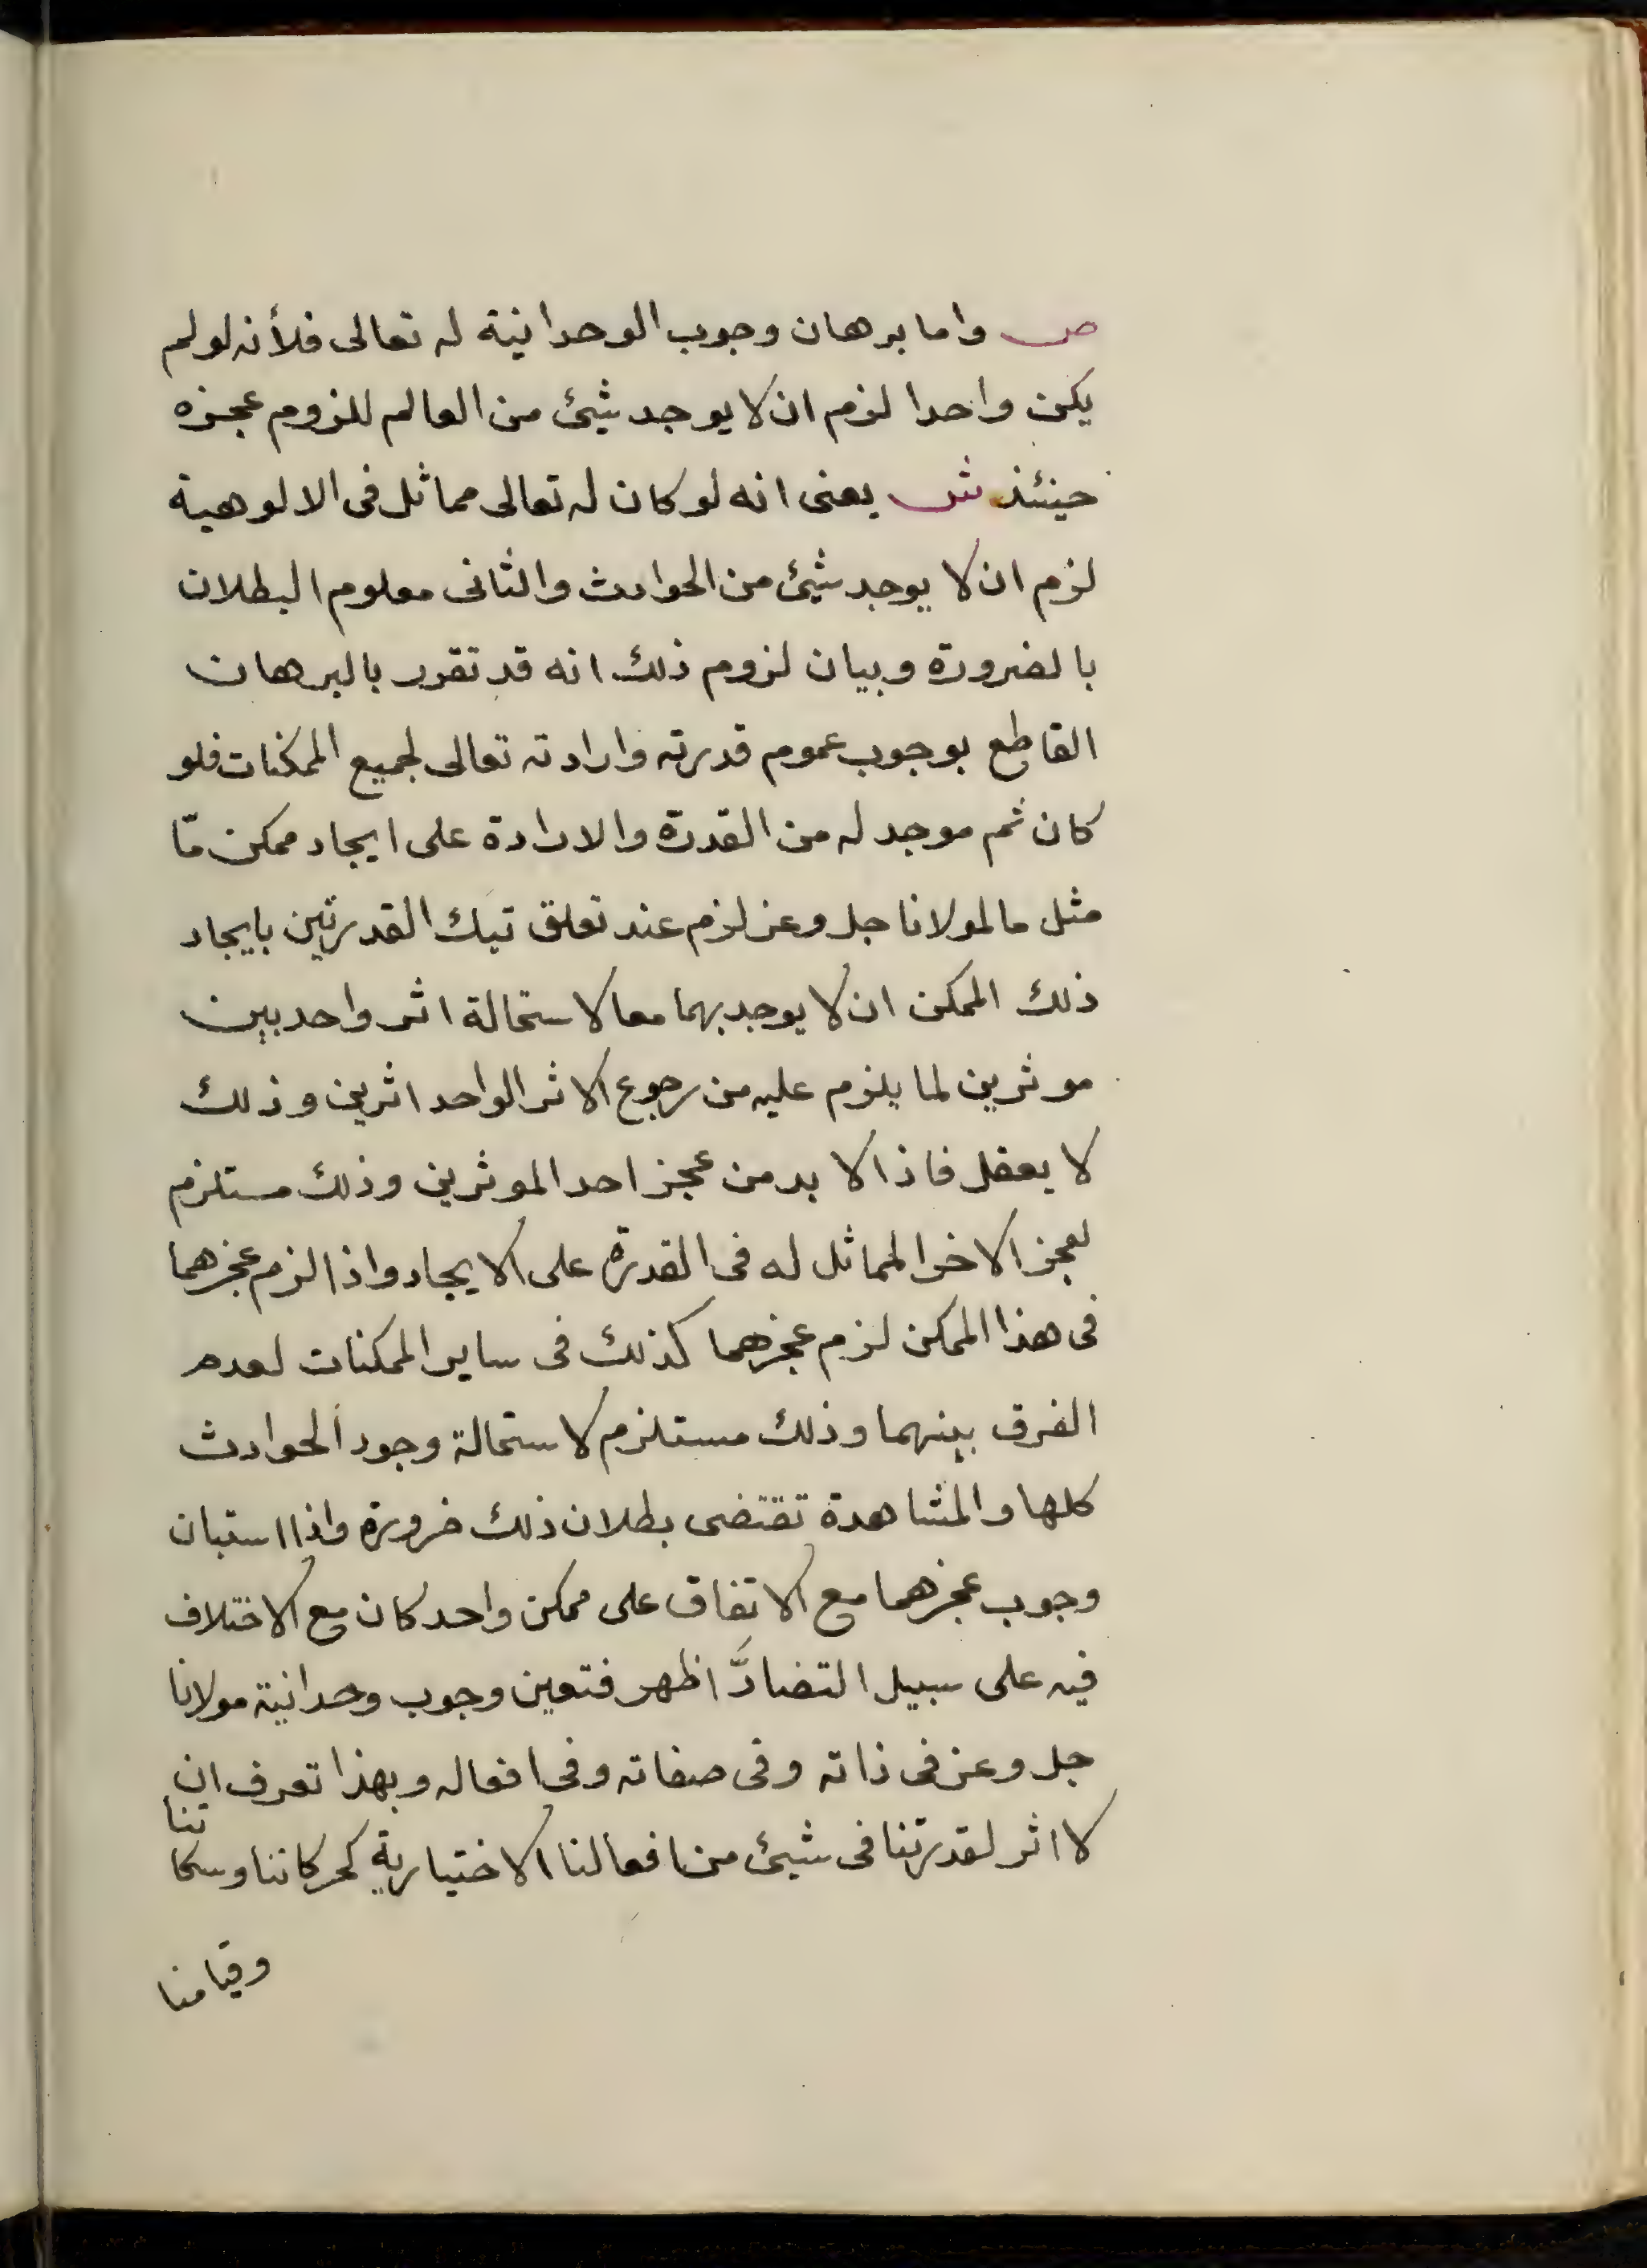 ص واما برهان وجوب الوحدانية له تعالى فلأنه لو لم
يكن واحدا لزم ان لا يوجد شيئ من العالم للزوم عجزه
حينئذ ش يعنى انه لو كان له تعالى مماثل فى الالوهية
لزم ان لا يوجد شيئ من الحوادث والثانى معلوم البطلان
بالضرورة وبيان لزوم ذلك انه قد تقرر بالبرهان
القاطع بوجوب عموم قدرته وارادته تعالى لجميع الممكنات فلو
كان ثم موجد له من القدرة والارادة على ايجاد ممكن مّا
مثل ما لمولانا جل وعز لزم عند تعلق تيك القدرتين بايجاد
ذلك الممكن ان لا يوجد بهما معا لاستحالة اثر واحد بين
موثرين لما يلزم عليه من رجوع الاثر الواحد اثرين وذلك
لا يعقل فاذا لا بد من عجز احد الموثرين وذلك مستلزم
لعجز الاخر المماثل له فى القدرة على الايجاد واذا لزم عجزهما
فى هذا الممكن لزم عجزهما كذلك فى ساير الممكنات لعدم
الفرق بينهما وذلك مستلزم لاستحالة وجود الحوادث
كلها والمشاهدة تقتضى بطلان ذلك ضرورة واذا استبان
وجوب عجزهما مع الاتفاق على ممكن واحد كان مع الاختلاف
فيه على سبيل التضادّ اظهر فتعين وجوب وحدانية مولانا
جل وعز فى ذاته وفى صفاته وفى افعاله وبهذا تعرف ان
لا اثر لقدرتنا فى شيئ من افعالنا الاختيارية كحركاتنا وسكناتنا
وقيامنا